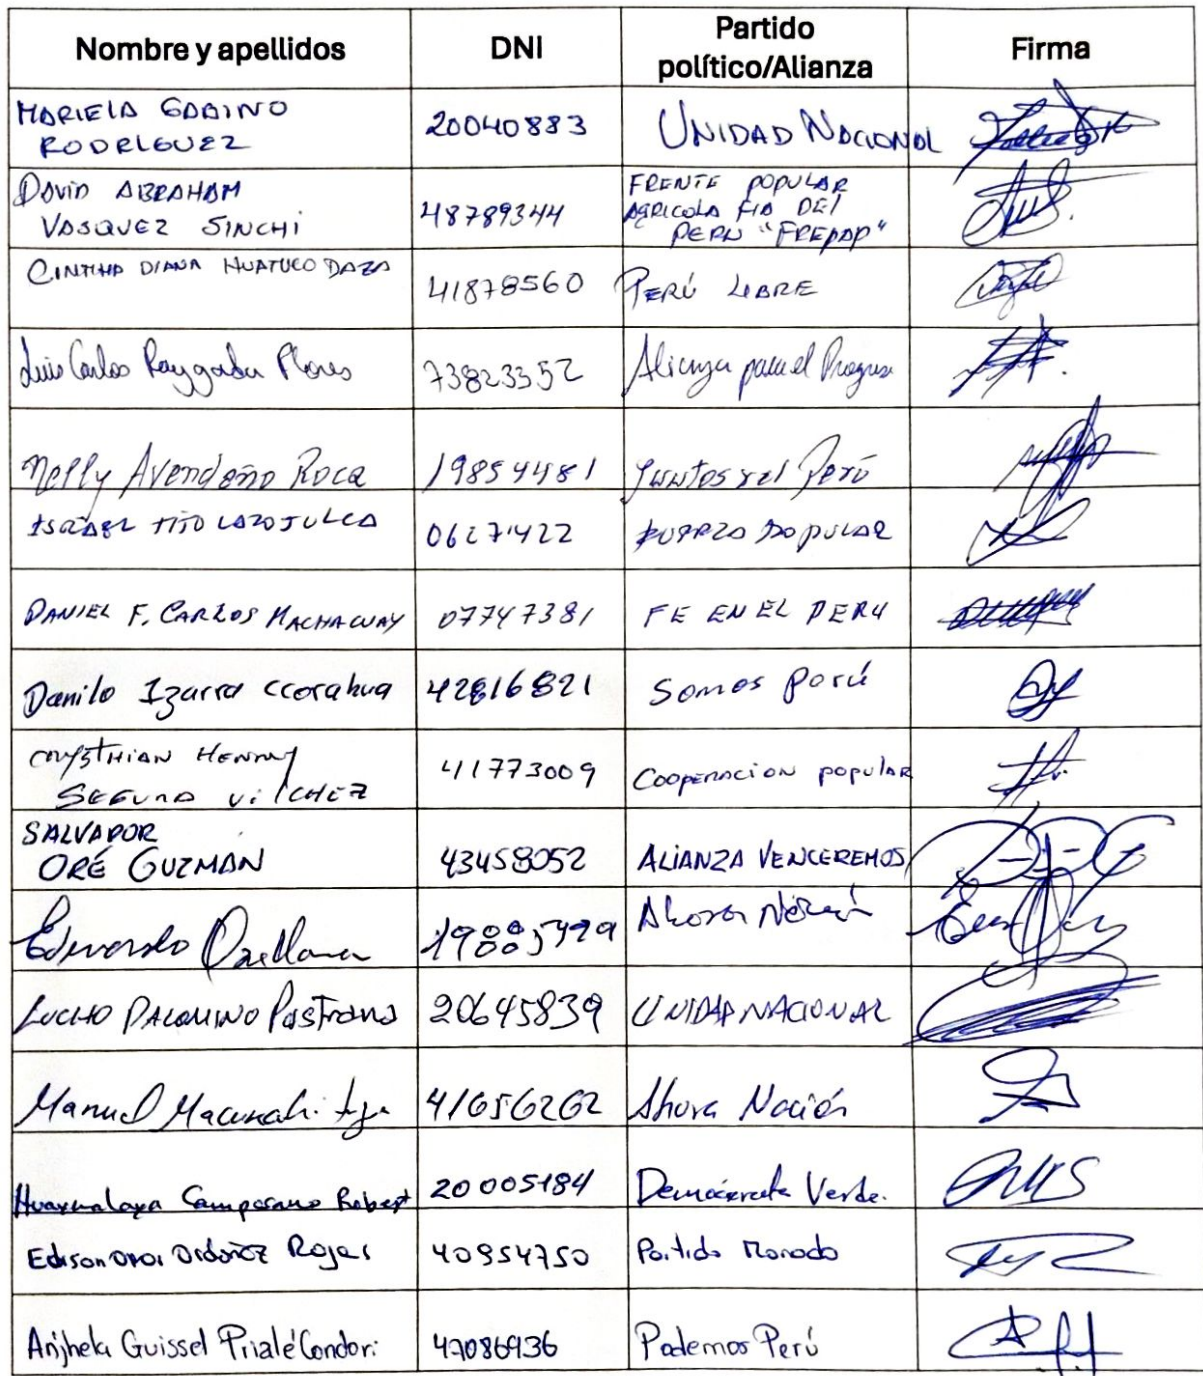 Nombre y apellidos DNI Partido político/Alianza Firma
MARIELA GABINO
RODRIGUEZ 20040883 UNIDAD NACIONAL
DAVID ABRAHAM
VASQUEZ SINCHI 48789344 FRENTE POPULAR
AGRICOLA FIA DEL
PERU "FREPAP"
CINTHIA DIANA HUATUCO DAZA 41878560 PERÚ LIBRE
Luis Carlos Raygada Flores 73823352 Alianza para el Progreso
Nelly Avendaño Roca 19854481 Juntos x el Perú
ISRAEL TITO LAZO JULCA 06271422 FUERZA POPULAR
DANIEL F. CARLOS MACHACUAY 07747381 FE EN EL PERU
Danilo Izarra Ccorahua 42816821 Somos Perú
CRYSTHIAN HENRRY
SEGURA VILCHEZ 41773009 COOPERACION POPULAR
SALVADOR
ORÉ GUZMAN 43458052 ALIANZA VENCEREMOS
Eduardo Orellana Ahora Nación
LUCHO PALOMINO Pastrana 20645839 UNIDAD NACIONAL
Manuel 41656262 Ahora Nación
Huaynalaya Camposano Robert 20005184 Demócrata Verde.
Edison Ordoñez Rojas 40954750 Partido Morado
Anjhela Guissel Prialé Condori 47086936 Podemos Perú